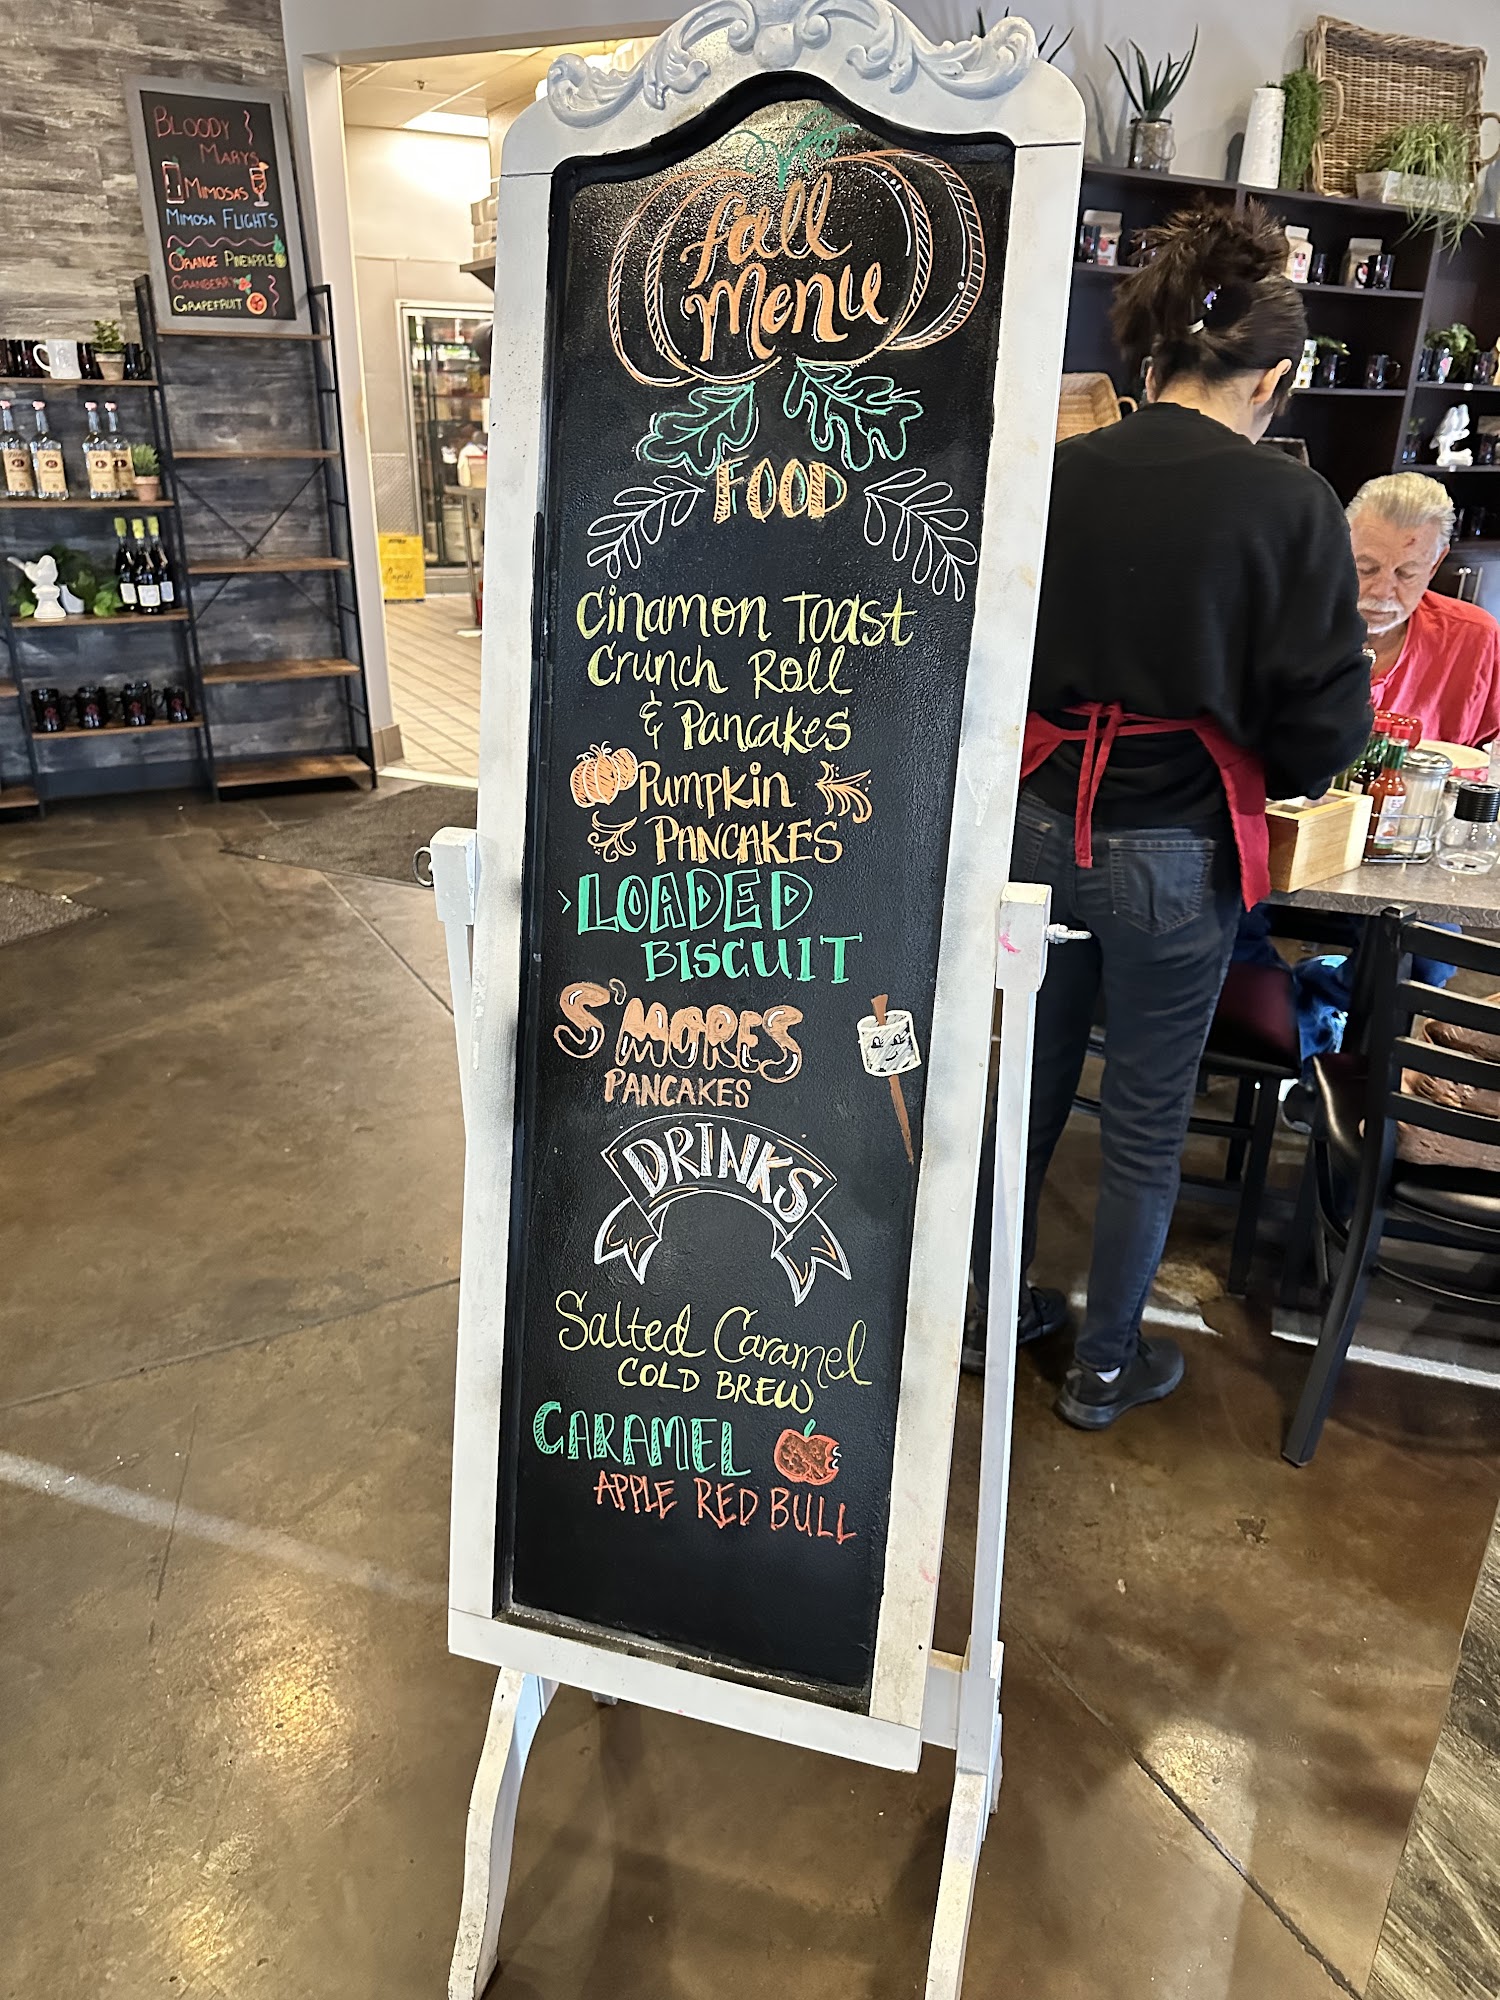 BLOODY
MARYS
MIMOSAS
MIMOSA FLIGHTS
ORANGE PINEAPPLE
CRANBERRY
GRAPEFRUIT
fall
Menu
FOOD
Cinamon Toast
Crunch Roll
& Pancakes
Pumpkin
PANCAKES
LOADED
BISCUIT
S'MORES
PANCAKES
DRINKS
Salted Caramel
COLD BREW
CARAMEL
APPLE RED BULL